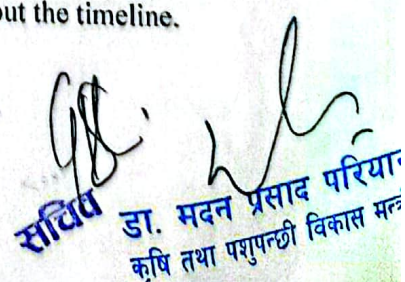 out the timeline.
सचिव
डा. मदन प्रसाद परियार
कृषि तथा पशुपन्छी विकास मन्त्र